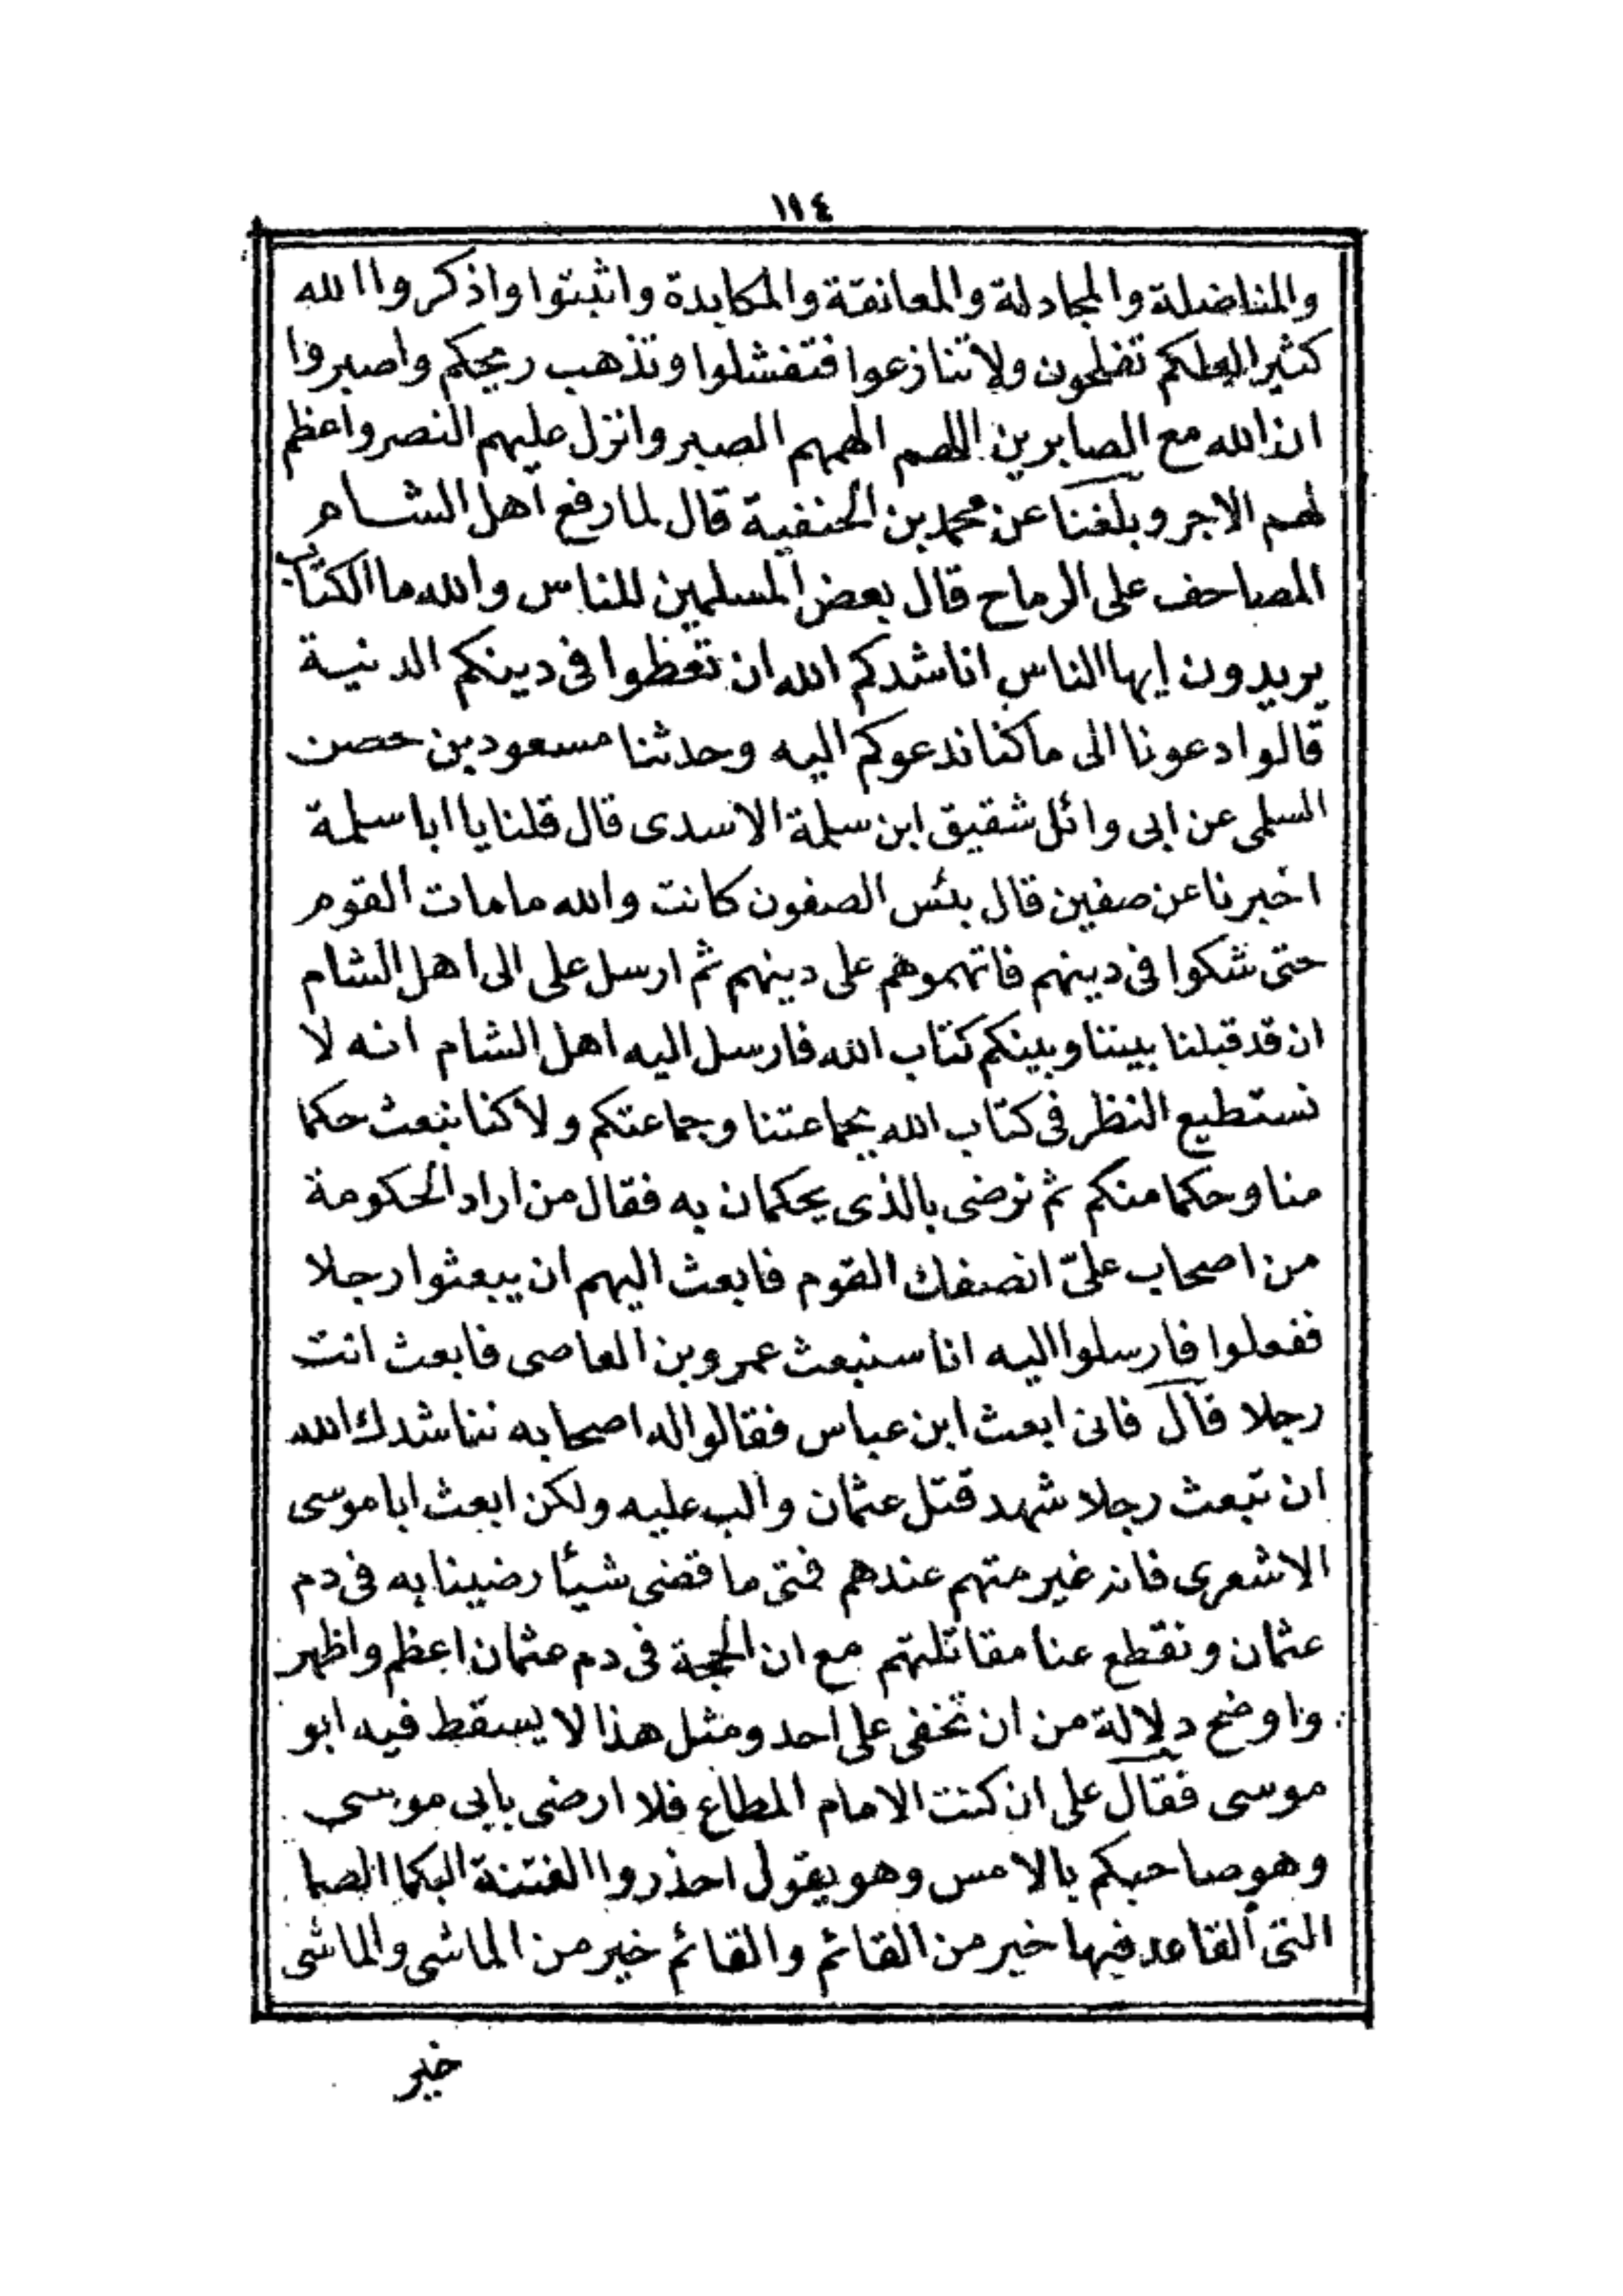 ١١٤
والمناضلة والمجادلة والمعانقة والمكابدة واثبتوا واذكروا الله
كثيرا لعلكم تفلحون ولا تنازعوا فتفشلوا وتذهب ريحكم واصبروا
ان الله مع الصابرين اللهم الهمهم الصبر وانزل عليهم النصر واعظم
لهم الاجر وبلغنا عن محمد بن الحنفية قال لما رفع اهل الشام
المصاحف على الرماح قال بعض المسلمين للناس والله ما الكتاب
يريدون ايها الناس اناشدكم الله ان تعطوا فى دينكم الدنية
قالوا دعونا الى ما كنا ندعوكم اليه وحدثنا مسعود بن حصن
السلمى عن ابى وائل شقيق ابن سلمة الاسدى قال قلنا يا ابا سلمة
اخبرنا عن صفين قال بئس الصفون كانت والله ما مات القوم
حتى شكوا فى دينهم فاتهموهم على دينهم ثم ارسل على الى اهل الشام
ان قد قبلنا بيننا وبينكم كتاب الله فارسل اليه اهل الشام انه لا
نستطيع النظر فى كتاب الله بجماعتنا وجماعتكم ولاكنا نبعث حكما
منا وحكما منكم ثم نرضى بالذى يحكمان به فقال من اراد الحكومة
من اصحاب علىّ انصفك القوم فابعث اليهم ان يبعثوا رجلا
ففعلوا فارسلوا اليه انا سنبعث عمرو بن العاصى فابعث انت
رجلا قال فانى ابعث ابن عباس فقالوا له اصحابه نناشدك الله
ان تبعث رجلا شهد قتل عثمان والب عليه ولكن ابعث ابا موسى
الاشعرى فانه غير متهم عندهم فمتى ما قضى شيئا رضينا به فى دم
عثمان ونقطع عنا مقاتلتهم مع ان الحجة فى دم عثمان اعظم واظهر
واوضح دلالة من ان تخفى على احد ومثل هذا لا يسقط فيه ابو
موسى فقال على ان كنت الامام المطاع فلا ارضى بابى موسى
وهو صاحبكم بالامس وهو يقول احذروا الفتنة البكما الصما
التى القاعد فيها خير من القائم والقائم خير من الماشى والماشى
خير